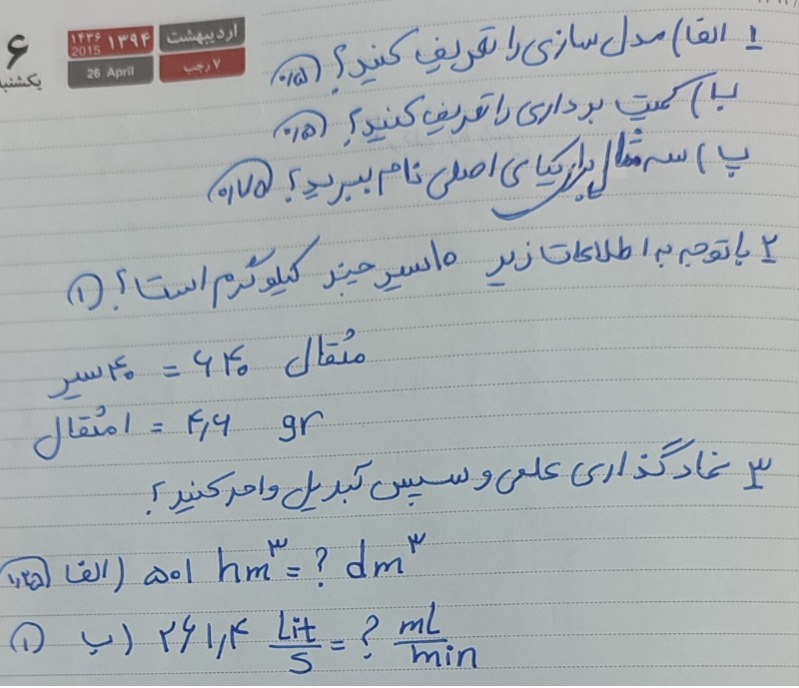 ۶
یکشنبه
۱۴۳۶
2015
۱۳۹۴
اردیبهشت
26 April
۷ رجب
۱ الف) مدل سازی را تعریف کنید؟ (۰/۵)
ب) کمیت برداری را تعریف کنید؟ (۰/۵)
پ) سه مثال برای یکای اصلی نام ببرید؟ (۰/۷۵)
۲ با توجه به اطلاعات زیر ۱۵ سیر چند کیلوگرم است؟ (۱)
۴۰ سیر = ۶۴۰ مثقال
۱ مثقال = ۴٫۶ gr
۳ نمادگذاری علمی و سپس تبدیل واحد کنید؟
الف) ۵۰۱ hm³ = ? dm³ (۱/۲۵)
ب) ۲۶۱٫۴ Lit/s = ? mL/min (۱)